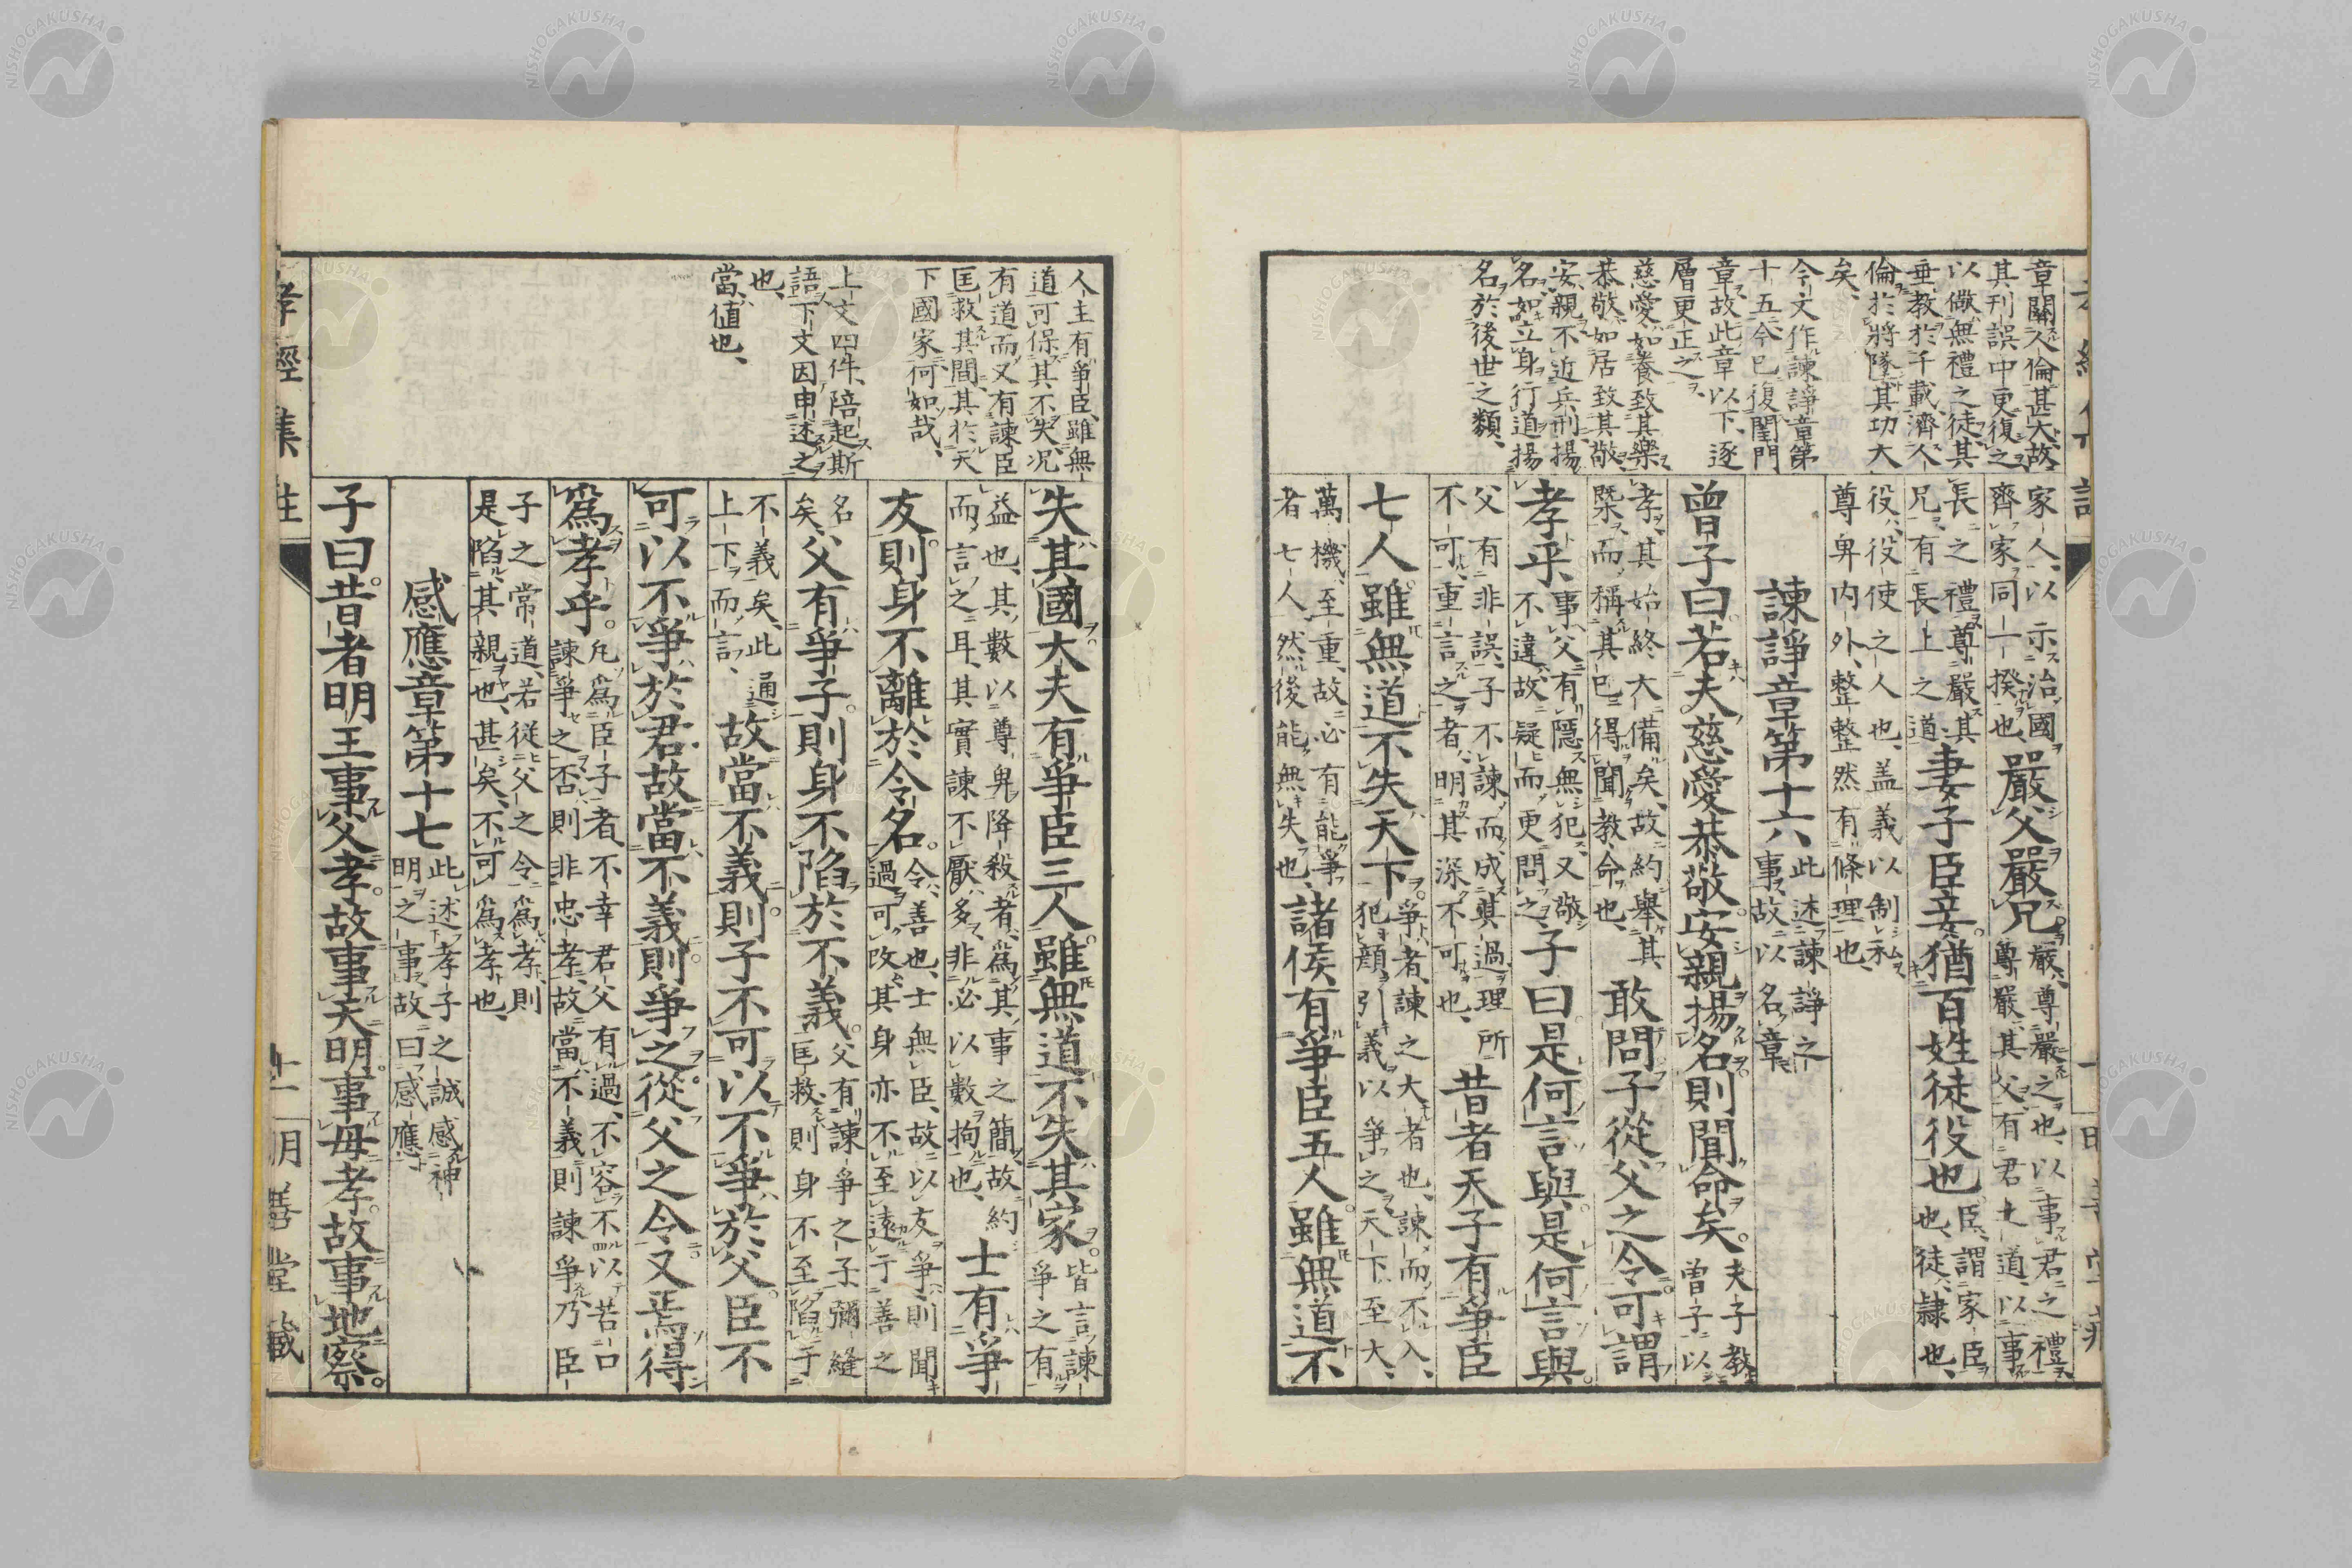 章關人倫甚大故
其刊誤中更復之
以儆無禮之徒其
垂教於千載濟人
倫於將墜其功大
矣、
今文作諫諍章第
十五今已復閨門
章故此章以下、逐
層更正之
慈愛如養致其樂
恭敬如居致其敬
安親不近兵刑揚
名如立身行道揚
名於後世之類、
家人以示治國
齊家同一揆也、
嚴父嚴兄。
嚴、尊嚴之也、以事君之禮
尊嚴其父、有君上道、以事
長之禮尊嚴其
兄有長上之道
妻子臣妾。猶百姓徒役也
臣、謂家臣
也、徒、隸也、
役、役使之人也、蓋義以制私
尊卑内外、整整然有條理也、
諫諍章第十六
此述諫諍之
事故以名章
曾子曰。若夫慈愛恭敬。安親揚名。則聞命矣。
夫子教
曾子以
孝、其始終大備矣、故約舉其
槩而稱其已得聞教命也、
敢問子從父之令。可謂
孝乎、
事父有隱無犯、又敬
不違故疑而更問之
子曰。是何言與。是何言與。
父有非誤、子不諫而成其過、理所
不可、重言之者、明其深不可也、
昔者天子有爭臣
七人。雖無道不失天下。
爭者、諫之大者也、諫而不入、
犯顏引義以爭之、天下至大、
萬機至重、故必有能爭
者七人然後能無失也、
諸侯有爭臣五人。雖無道不
人主有爭臣、雖無
道可保其不失、况
有道而又有諫臣
匡救其間、其於天
下國家何如哉、
上文四件、陪起斯
語下文因申述之
也、
當、値也、
失其國。大夫有爭臣三人。雖無道不失其家。
皆言諫
爭之有
益也、其數以尊卑降殺者、爲其事之簡故約
而言之耳、其實諫不厭多、非必以數拘也、
士有爭
友。則身不離於令名。
令、善也、士無臣、故以友爭、則聞
過可改其身亦不至遠于善之
名
矣、
父有爭子。則身不陷於不義。
父有諫爭之子、彌縫
匡救、則身不至陷于
不義矣、此通
上下而言、
故當不義。則子不可以不爭於父。臣不
可以不爭於君。故當不義。則爭之。從父之令。又焉得
爲孝乎。
凡爲臣子者、不幸君父有過、不容不以苦口
諫爭之、否則非忠孝、故當不義則諫爭乃臣
子之常道、若從父之令爲孝、則
是陷其親也、甚矣、不可爲孝也、
感應章第十七
此述孝子之誠感神
明之事、故曰感應
子曰。昔者明王事父孝。故事天明。事母孝。故事地察。
孝經集註
明善堂藏